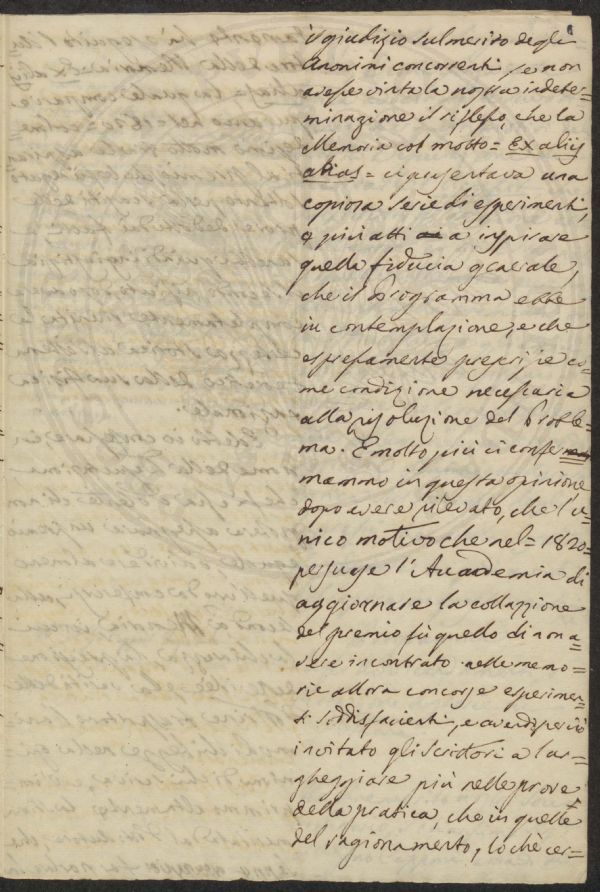 il giudizio sul merito degli
Anonimi concorrenti, se non
avesse vinta la nostra indeter=
minazione il riflesso, che la
Memoria col motto = Ex alijs
alias = ci presentava una
copiosa serie di esperimenti,
e più atti a inspirare
quella fiducia generale,
che il Programma ebbe
in contemplazione, e che
espressamente prescrisse co=
me condizione necessaria
alla risoluzione del Proble=
ma. E molto più ci confer=
mammo in questa opinione,
dopo avere rilevato, che l'u=
nico motivo che nel = 1820 =
persuase l'Accademia di
aggiornare la collazione
del premio fù quello di non a=
vere incontrato nelle memo=
rie allora concorse esperimen=
ti soddisfacienti, e aver di perciò
invitato gli Scrittori a lar=
gheggiare più nelle prove
della pratica, che in quelle
del ragionamento, lo chè cer=